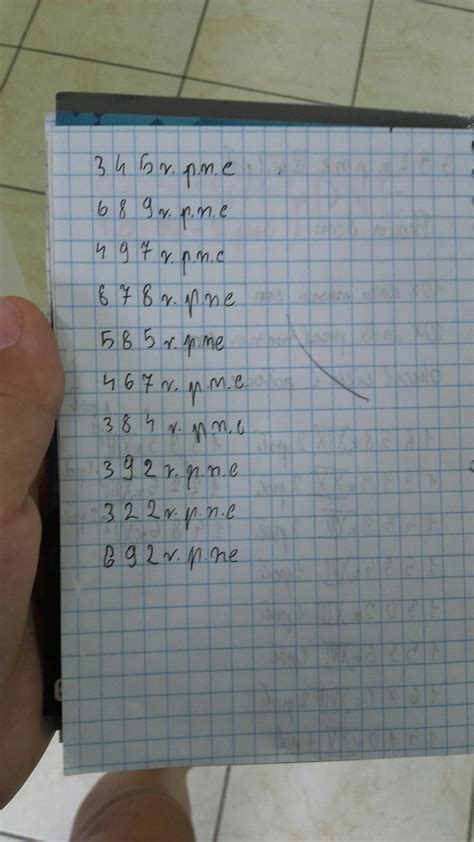 345 г. р.п.е
689 г. р.п.е
497 г. р.п.е
678 г. р.п.е
585 г. р.п.е
467 г. р.п.е
384 г. р.п.е
392 г. р.п.е
322 г. р.п.е
692 г. р.п.е